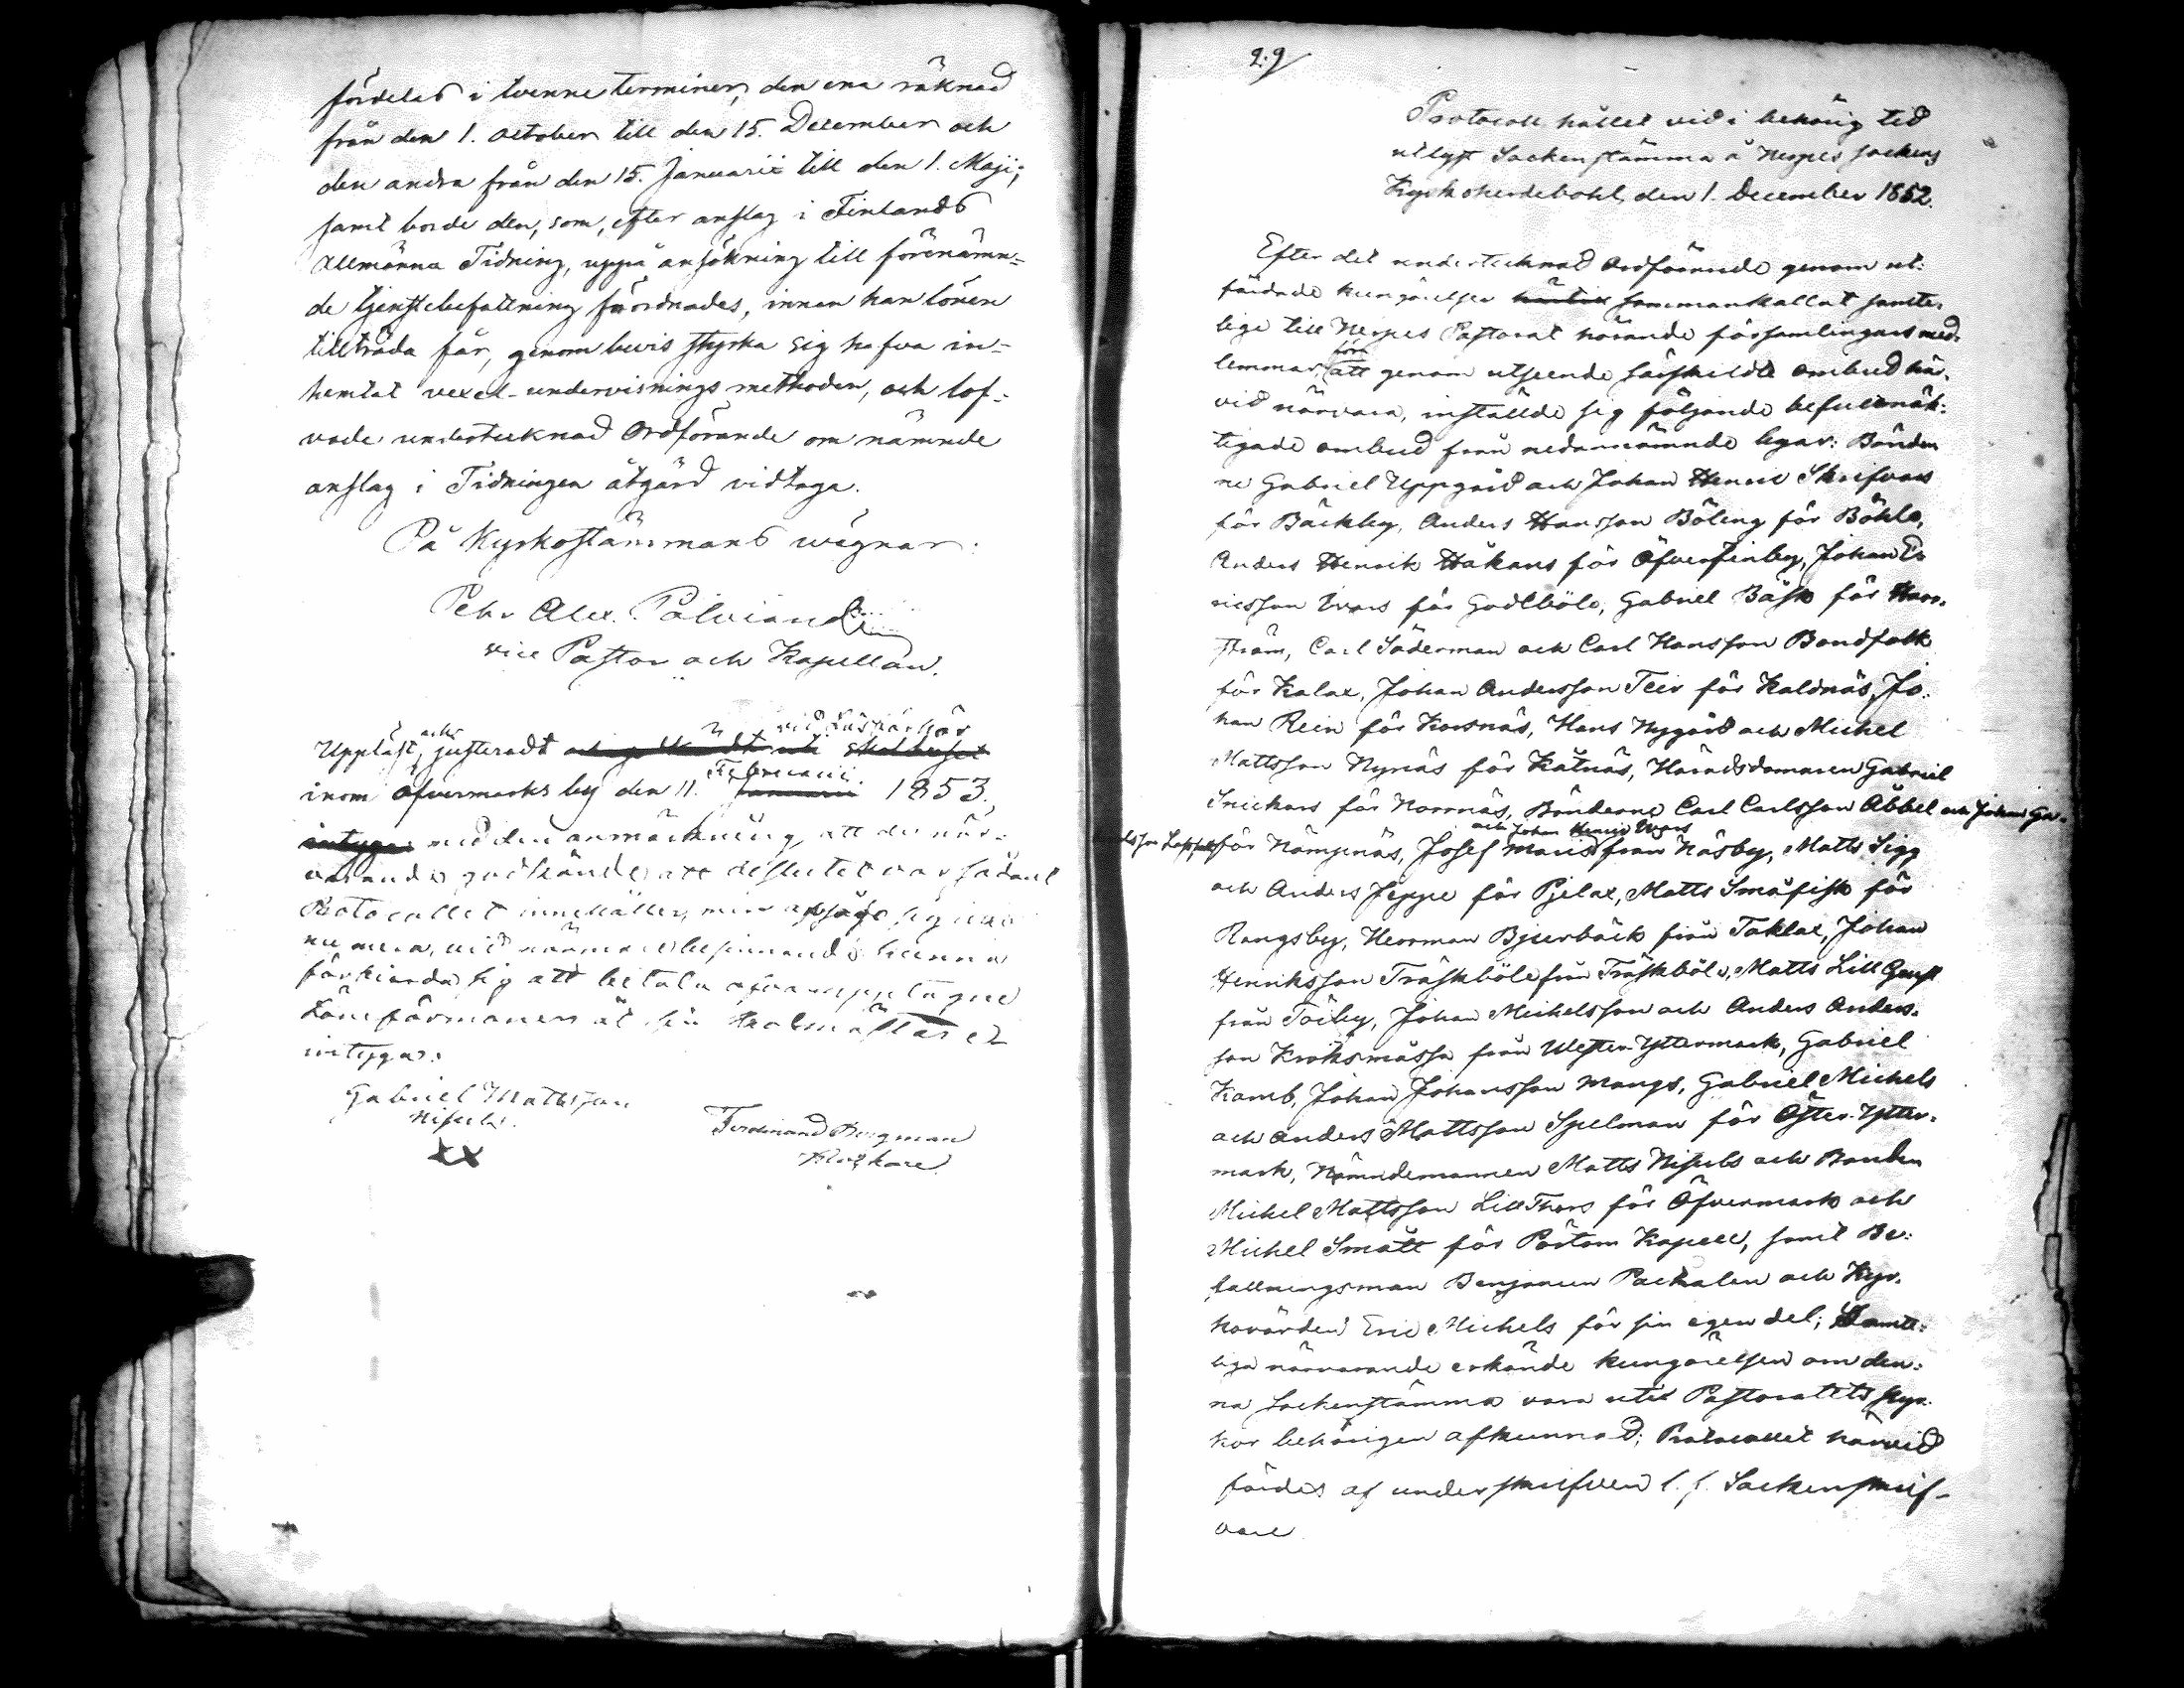 fördelas i tvenne terminer, den ena räknad
från den 1. october till den 15. December och
den andra från den 15. Januarii till den 1. Maji;
samt borde den, som, efter anslag i Finlands
Allmänna Tidning, uppå ansökning till förenämn=
de tjenstebefattning förordnades, innan han lönen
tillträda får, genom bevis styrka sig hafva in=
hemtat vexel-undervisnings methoden, och lof=
vade undertecknad Ordförande om nämnde
anslag i Tidningen åtgärd vidtaga.
På Kyrkostämmans wägnar:
Pehr Alex.
vice Pastor och Kapellan.
vid Läsförhör
Uppläst, och justeradt
Februarii
inom Öfvermarks by den 11. Januarii 1853,
intygar med den anmärkning, att de när=
varande godkände att beslutet var sådant
Protocollet innehåller, men sig icke
numera, vid närmare besinnande kunna
förbinda sig att betala
Löneförmåner åt sin Skolmästare
intygar:
Gabriel Mattsson
Nisula.
Ferdinand Bergman
Klockare
29
Protocoll hållet vid i behörig tid
utlyst Sockenstämma å Nerpes sockens
Kyrkoherdebohl, den 1. December 1852.
Efter det undertecknad Ordförande genom ut=
färdade kungörelser härtill sammankallat samte=
lige till Nerpes Pastorat hörande församlingars med=
lemmar, för att genom utseende särskildte ombud här=
vid närvara, inställde sig följande befullmäk=
tigade ombud från nedannämnde byar: Bönder
ne Gabriel Uppgård och Johan Henric Skrifvars
för Bäckby, Anders Hansson Böling för Böhle,
Anders Henrik Håkans för Öfverfinby, Johan Er
icsson Ivars för Gottböle, Gabriel Bäsk för Harr=
ström, Carl Söderman och Carl Hansson Bondfolk
för Kalax, Johan Andersson Teir för Kaldnäs, Jo=
han Rein för Korsnäs, Hans Nygård och Michel
Mattsson Nynäs för Kåtnäs, Häradsdomaren Gabriel
Snickars för Norrnäs, Bönderne Carl Carlsson Åbbel och Johan Ga=
och Johan Henric Ivars
för Nämpnäs, Josef Maris från Näsby, Matts Sigg
och Anders Jeppe för Pjelax, Matts Småfisk för
Rangsby, Herrman Bjerbäck från Taklax, Johan
Henriksson Träskböle från Träskböle, Matts Lill
från Töjby, Johan Michelsson och Anders Anders=
son Kråkmåssa från Wester-Yttermark, Gabriel
Kamb, Johan Johansson Mangs, Gabriel Michels
och Anders Mattsson Spelman för Öster-Ytter=
mark, Nämndemannen Matts Nisula och Bonden
Michel Mattsson LillThors för Öfvermark och
Michel Smått för Pörtom Kapell, samt Be=
fallningsman Benjamin Packalen och Kyr=
kovärden Eric Michels för sin egen del; Samte=
lige närvarande erkände kungörelsen om den=
na Sockenstämma vara uti Pastoratets kyr=
kor behörigen afkunnad; Protocollet härvid
fördes af underskrifven t. f. Sockenskrif=
vare